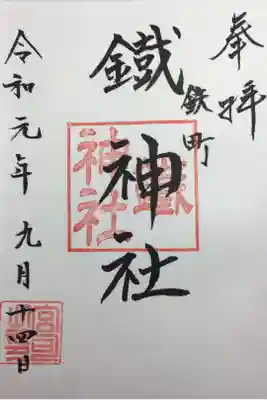 奉拝
鉄町
鐵神社
令和元年九月十四日
鐵神社